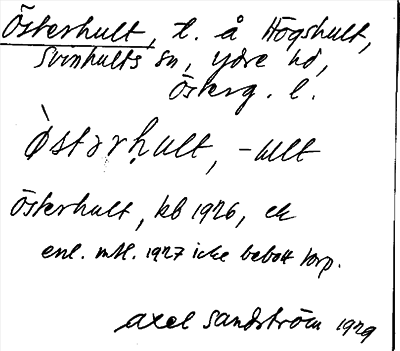 Österhult, t. å Högshult,
Svinhults sn, Ydre hd,
Österg. l.
östərḥult, -ult
Österhult, kb 1926, ek
enl. mtl. 1927 icke bebott torp.
Axel Sandström 1929